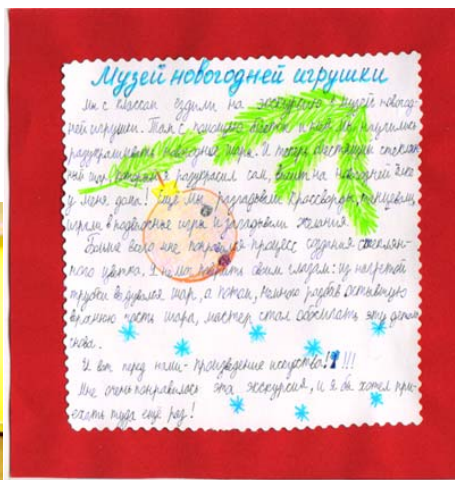 Музей новогодней игрушки
Мы с классом ездили на экскурсию в музей новогод-
ней игрушки. Там с помощью блёсток и мы научились
разукрашивать новогодние шары. И теперь блестящий стеклян-
ный шар, который я разукрасил сам, висит на новогодней ёлке
у меня дома! Ещё мы разгадывали кроссворды, танцевали,
играли в подвижные игры и загадывали желания.
Больше всего мне понравился процесс создания стеклян-
ного цветка. Я не мог поверить своим глазам: из нагретой
трубки выдувался шар, а потом, немного разбив остывшую
часть шара, мастер стал эту деталь
снова.
И вот перед нами - произведение искусства!!!!!
Мне очень понравилась эта экскурсия, и я бы хотел при-
ехать туда ещё раз!